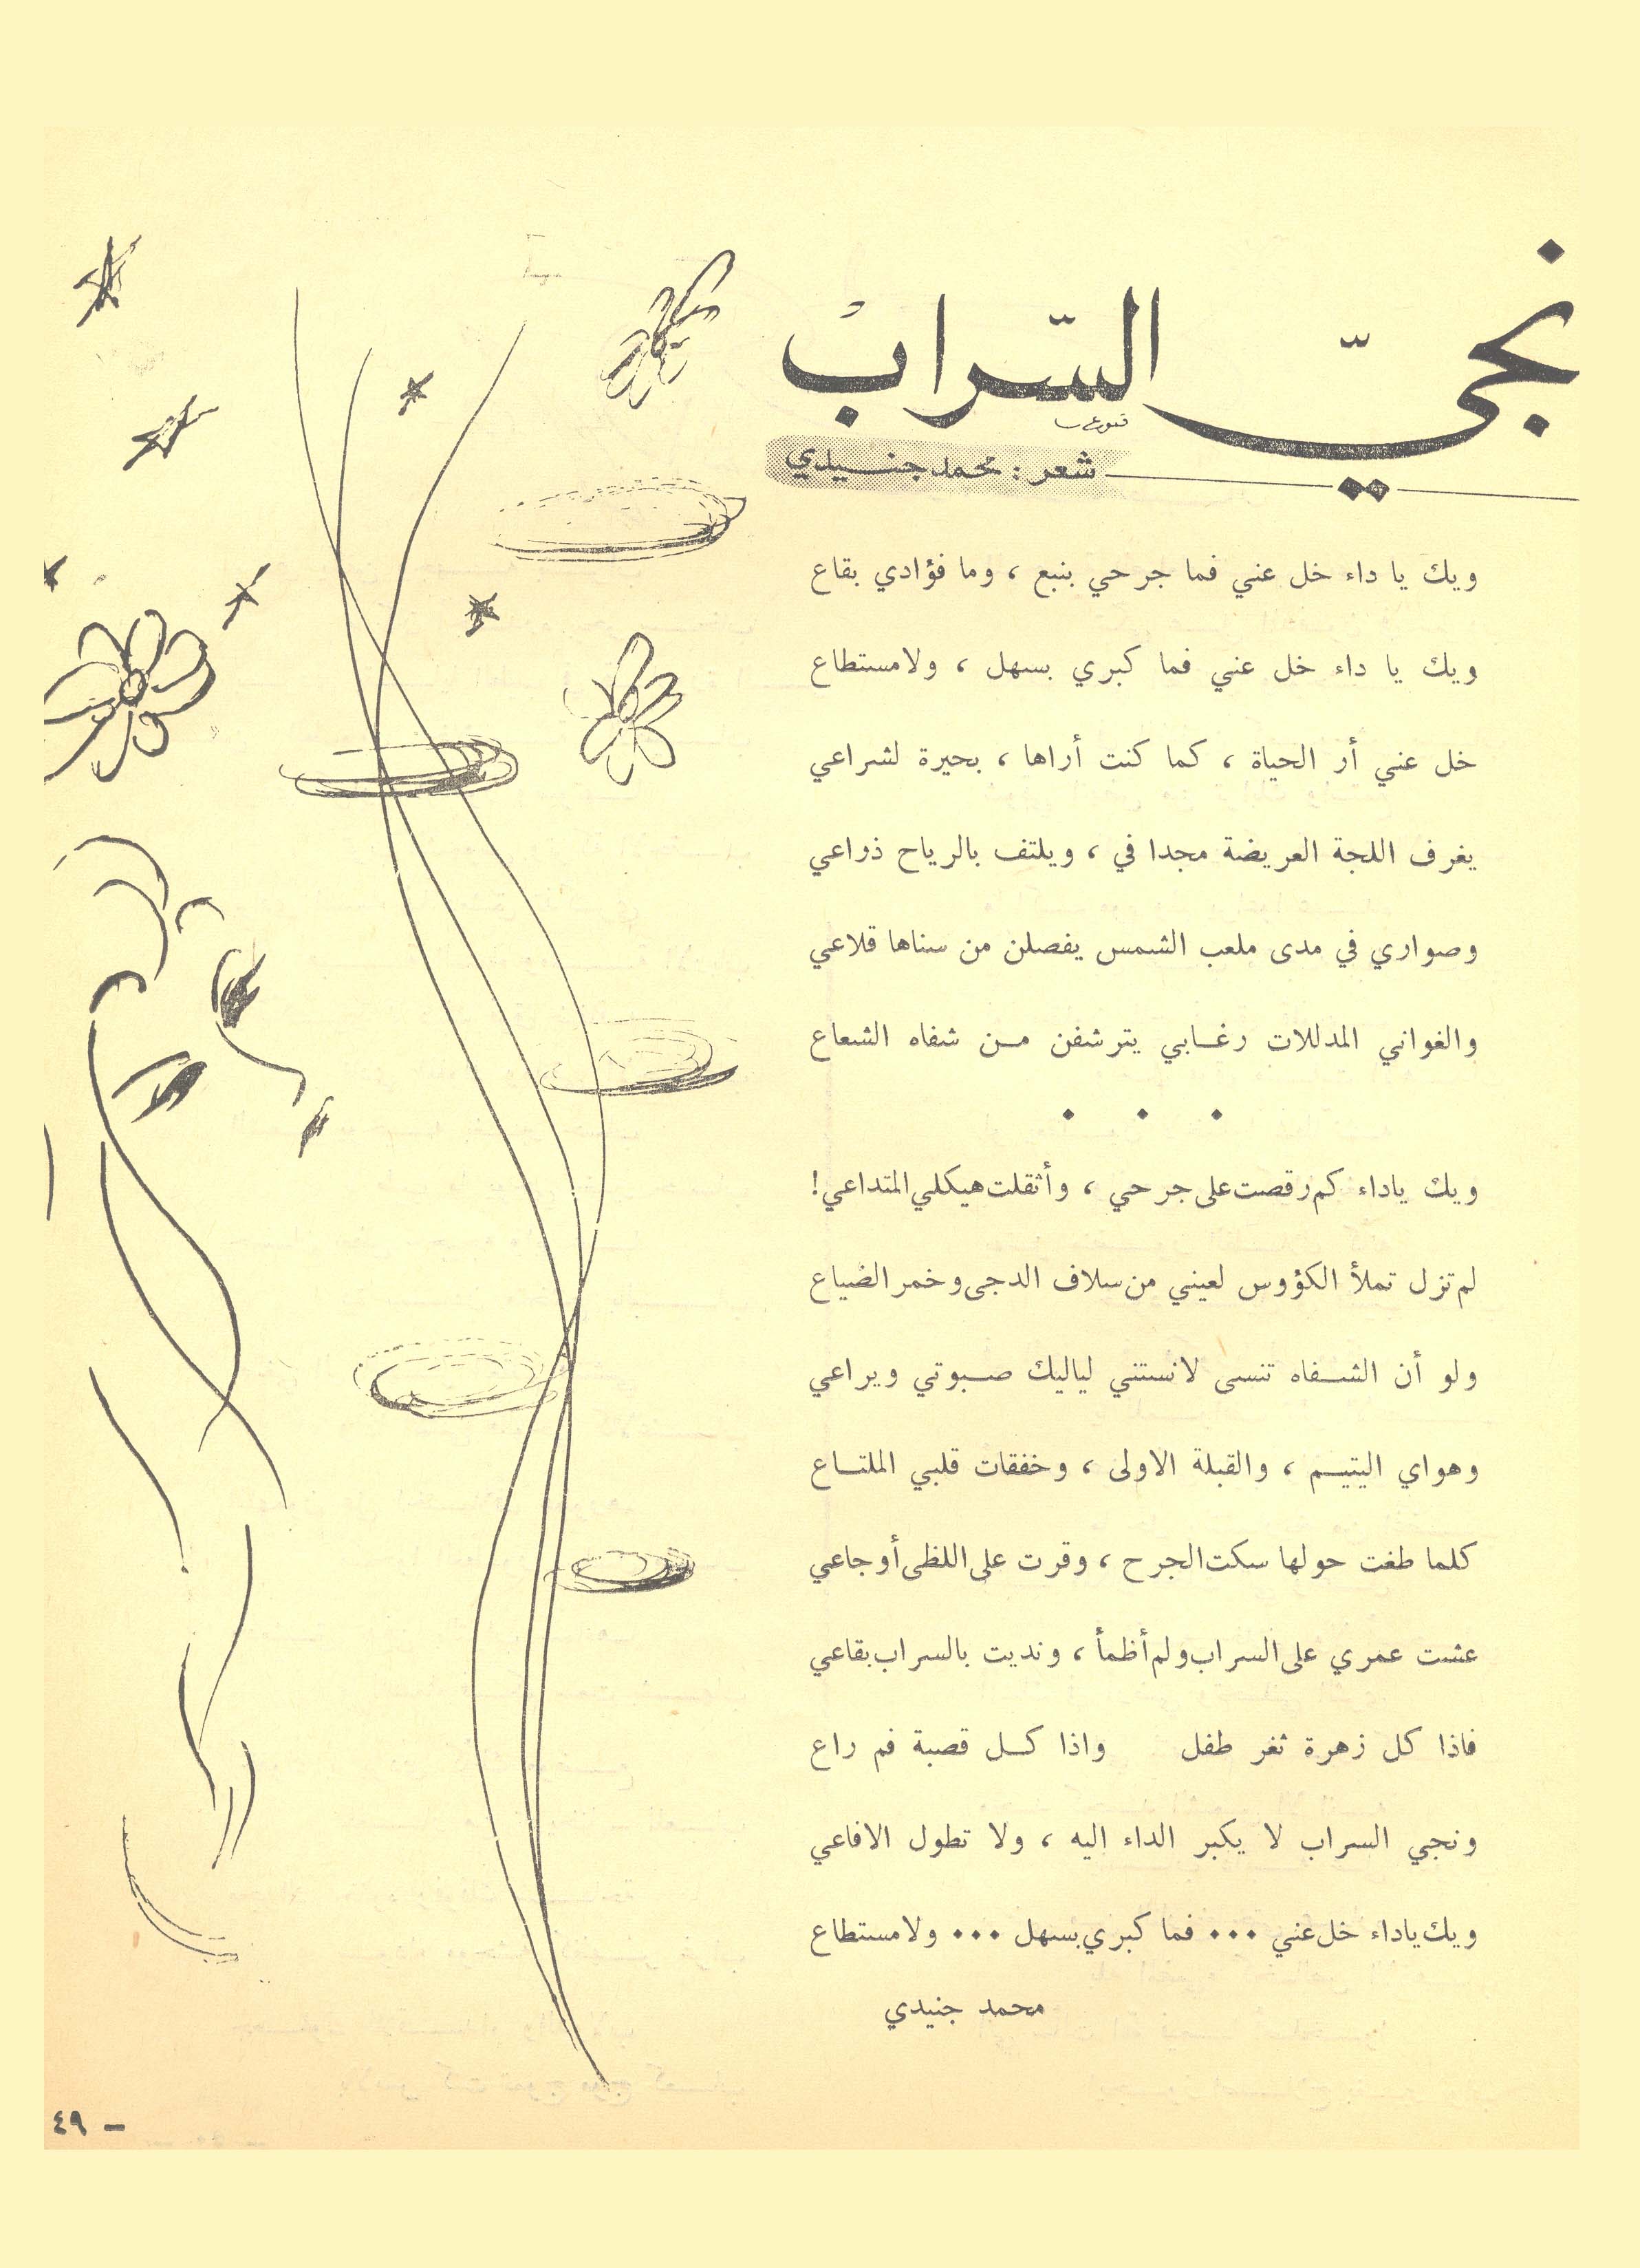 نجيّ السّرابْ
شعر : محمد جنيدي
ويك يا داء خل عني فما جرحي بنبع ، وما فؤادي بقاع
ويك يا داء خل عني فما كبري بسهل ، ولامستطاع
خل عني أر الحياة ، كما كنت أراها ، بحيرة لشراعي
يغرف اللجة العريضة مجدا في ، ويلتف بالرياح ذراعي
وصواري في مدى ملعب الشمس يفصلن من سناها قلاعي
والغواني المدللات رغابي يترشفن من شفاه الشعاع
• • •
ويك ياداء كم رقصت على جرحي ، وأثقلت هيكلي المتداعي !
لم تزل تملأ الكؤوس لعيني من سلاف الدجى وخمر الضياع
ولو أن الشفاه تنسى لانستني لياليك صبوتي ويراعي
وهواي اليتيم ، والقبلة الاولى ، وخفقات قلبي الملتاع
كلما طفت حولها سكت الجرح ، وقرت على اللظى أوجاعي
عشت عمري على السراب ولم أظمأ ، ونديت بالسراب بقاعي
فاذا كل زهرة ثغر طفل واذا كل قصبة فم راع
ونجي السراب لا يكبر الداء اليه ، ولا تطول الافاعي
ويك ياداء خل عني ... فما كبري بسهل ... ولامستطاع
محمد جنيدي
٤٩ –